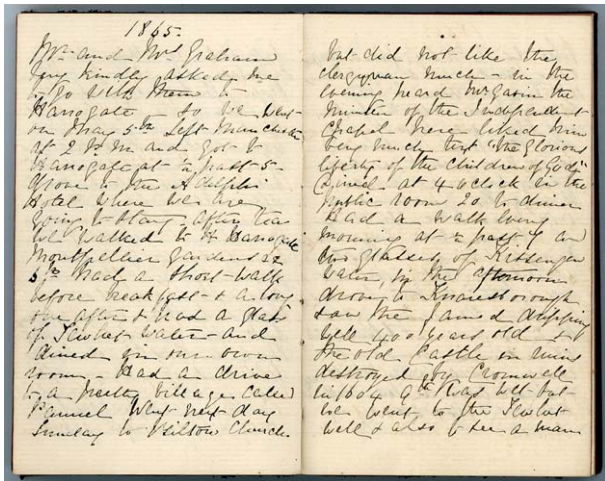 1865.
Mr. and Mrs Graham
very kindly asked me
to go with them to
Harrogate so we went
on May 5th left Manchester
at 2 to and got to
Harrogate at ½ past 5
drove to the Adelphi
Hotel where we are
going to stay, after tea
we walked to Harrogate
Montpellier Gardens
5th had a short walk
before breakfast & a long
one after & had a glass
of Tewhet water and
dined in our own
room - Had a drive
to a pretty village called
Pannel Went next day
Sunday to Bilton Church
but did not like the
clergyman much - in the
evening heard Mr the
Minister of the Independent
Chapel here liked him
very much text "the Glorious
liberty of the children of God"
dined at 4 o'clock in the
public room 20 to dinner
Had a walk every
morning at ½ past 7 &
two glasses of Kissengen
water, in the afternoon
drove to Knaresborough
saw the famed dripping
well 400 years old &
the old Castle in ruins
destroyed by Cromwell
in 1604 9th was wet but
we went to the Tewhet
well & also to see a man